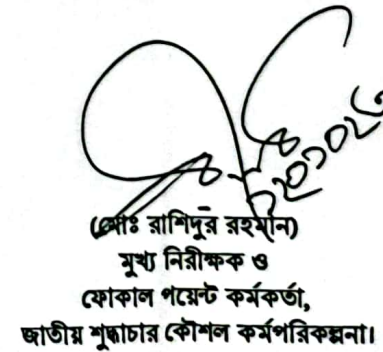 (মোঃ রাশিদুর রহমান)
মুখ্য নিরীক্ষক ও
ফোকাল পয়েন্ট কর্মকর্তা,
জাতীয় শুদ্ধাচার কৌশল কর্মপরিকল্পনা।